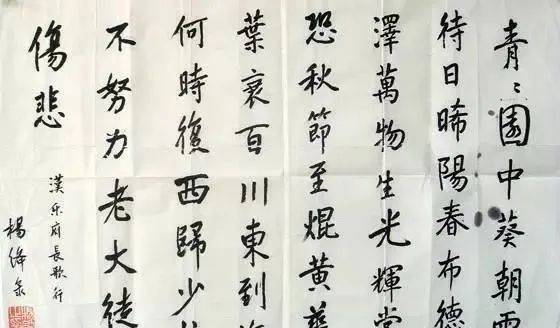 青〻園中葵朝
待日晞陽春布德
澤萬物生光輝
恐秋節至焜黄
葉衰百川東到
何時復西歸少
不努力老大徒
傷悲
漢乐府長歌行
楊絳